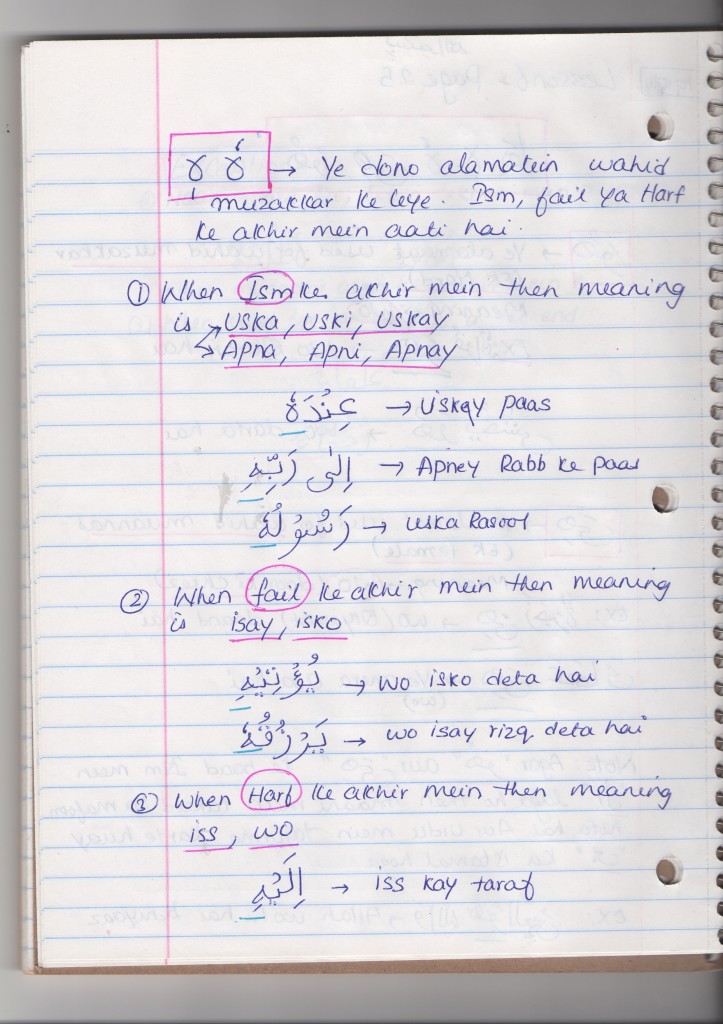 ہٖ ہٗ → Ye dono alamatein wahid
muzakkar ke leye. Ism, fail ya Harf
ke akhir mein aati hai.
① When Ism ke akhir mein then meaning
is → USKA, USKI, USKAY
→ Apna, Apni, Apnay
عِنْدَهٗ → USKAY paas
اِلٰى رَبِّهٖ → Apney Rabb ke paas
رَسُوْلُهٗ → uska Rasool
② When fail ke akhir mein then meaning
is isay, isko
يُؤْتِيْهِ → wo isko deta hai
يَرْزُقُهٗ → wo isay rizq deta hai
③ When Harf ke akhir mein then meaning
iss, wo
اِلَيْهِ → iss kay taraf